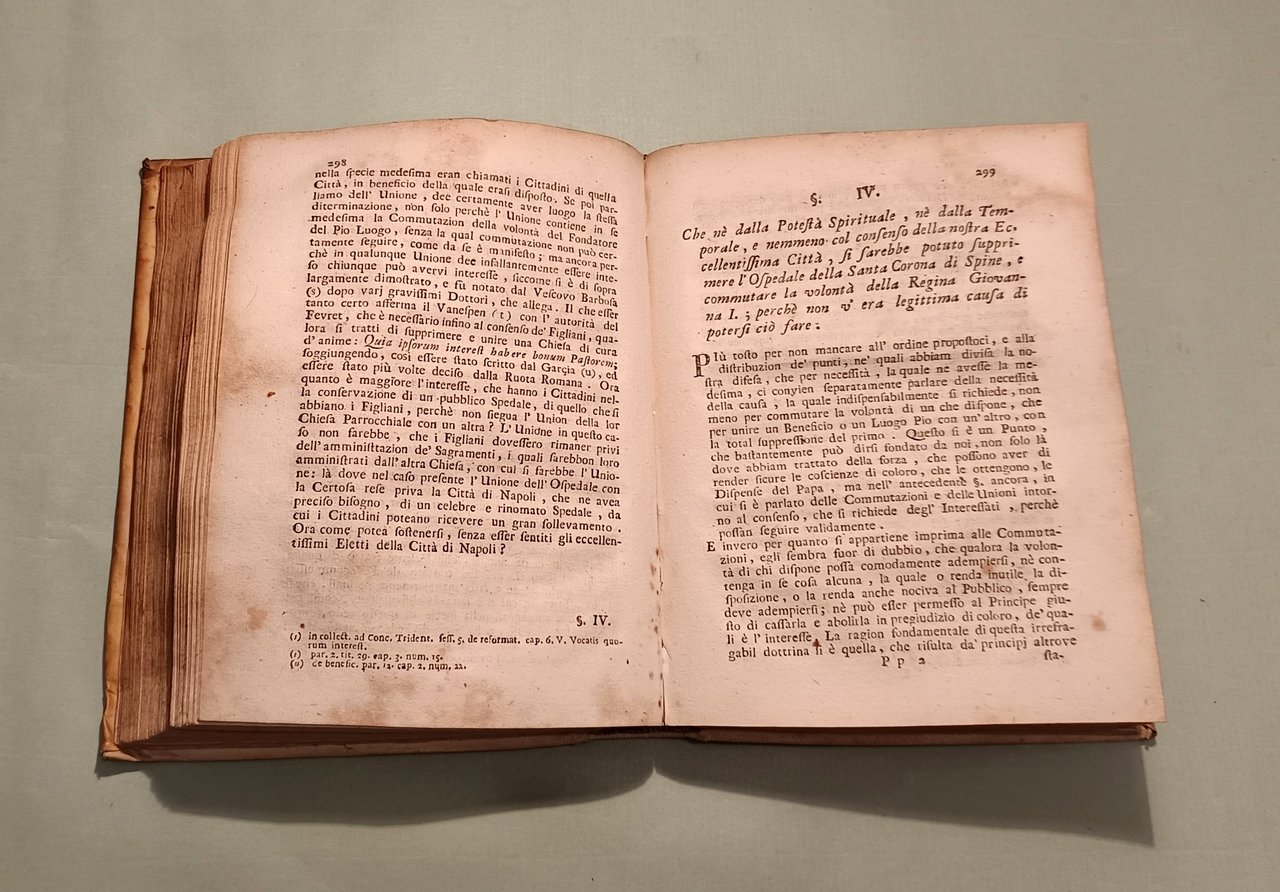 298
nella ſpecie medeſima eran chiamati i Cittadini di quella
Città, in beneficio della quale eraſi diſpoſto. Se poi par-
liamo dell' Unione, dee certamente aver luogo la ſteſſa
diterminazione, non ſolo perchè l' Unione contiene in ſe
medeſima la Commutazion della volontà del Fondatore
del Pio Luogo, ſenza la qual commutazione non può cer-
tamente ſeguire, come da ſe è manifeſto; ma ancora per-
chè in qualunque Unione dee infallantemente eſſere inte-
ſo chiunque può avervi intereſſe, ſiccome ſi è di ſopra
largamente dimoſtrato, e fù notato dal Veſcovo Barboſa
(s) dopo varj graviſſimi Dottori, che allega. Il che eſſer
tanto certo afferma il Vaneſpen (t) con l' autorità del
Fevret, che è neceſſario infino al conſenſo de' Figliani, qua-
lora ſi tratti di ſupprimere e unire una Chieſa di cura
d' anime: Quia ipſorum intereſt habere bonum Paſtorem;
ſoggiungendo, così eſſere ſtato ſcritto dal Garçia (u), ed
eſſere ſtato più volte deciſo dalla Ruota Romana. Ora
quanto è maggiore l'intereſſe, che hanno i Cittadini nel-
la conſervazione di un pubblico Spedale, di quello che ſi
abbiano i Figliani, perchè non ſiegua l' Union della lor
Chieſa Parrocchiale con un altra? L' Unione in queſto ca-
ſo non farebbe, che i Figliani doveſſero rimaner privi
dell'amminiſtrazion de' Sagramenti, i quali ſarebbon loro
amminiſtrati dall'altra Chieſa, con cui ſi farebbe l'Unio-
ne: là dove nel caſo preſente l' Unione dell' Oſpedale con
la Certoſa reſe priva la Città di Napoli, che ne avea
preciſo biſogno, di un celebre e rinomato Spedale, da
cui i Cittadini poteano ricevere un gran ſollevamento.
Ora come potea ſoſtenerſi, ſenza eſſer ſentiti gli eccellen-
tiſſimi Eletti della Città di Napoli?
§. IV.
(s) in collect. ad Conc. Trident. ſeſſ. 5. de reformat. cap. 6. V. Vocatis quo-
rum intereſt.
(t) par. 2. tit. 29. cap. 3. num. 15.
(u) de benefic. par. 12. cap. 2. num. 22.
299
§. IV.
Che nè dalla Poteſtà Spirituale, nè dalla Tem-
porale, e nemmeno col conſenſo della noſtra Ec-
cellentiſſima Città, ſi ſarebbe potuto ſuppri-
mere l'Oſpedale della Santa Corona di Spine, e
commutare la volontà della Regina Giovan-
na I.; perchè non v' era legittima cauſa di
poterſi ciò fare.
PIù toſto per non mancare all' ordine propoſtoci, e alla
diſtribuzion de' punti, ne' quali abbiam diviſa la no-
ſtra difeſa, che per neceſſità, la quale ne aveſſe la me-
deſima, ci convien ſeparatamente parlare della neceſſità
della cauſa, la quale indiſpenſabilmente ſi richiede, non
meno per commutare la volontà di un che diſpone, che
per unire un Beneficio o un Luogo Pio con un' altro, con
la total ſuppreſſione del primo. Queſto ſi è un Punto,
che baſtantemente può dirſi fondato da noi, non ſolo là
dove abbiam trattato della forza, che poſſono aver di
render ſicure le coſcienze di coloro, che le ottengono, le
Diſpenſe del Papa, ma nell' antecedente §. ancora, in
cui ſi è parlato delle Commutazioni e delle Unioni intor-
no al conſenſo, che ſi richiede degl' Intereſſati, perchè
poſſan ſeguire validamente.
E invero per quanto ſi appartiene imprima alle Commuta-
zioni, egli ſembra fuor di dubbio, che qualora la volon-
tà di chi diſpone poſſa comodamente adempierſi, nè con-
tenga in ſe coſa alcuna, la quale o renda inutile la di-
ſpoſizione, o la renda anche nociva al Pubblico, ſempre
deve adempierſi; nè può eſſer permeſſo al Principe giu-
ſto di caſſarla e abolirla in pregiudizio di coloro, de' qua-
li è l' intereſſe. La ragion fondamentale di queſta irrefra-
gabil dottrina ſi è quella, che riſulta da' principj altrove
P p 2
ſta-